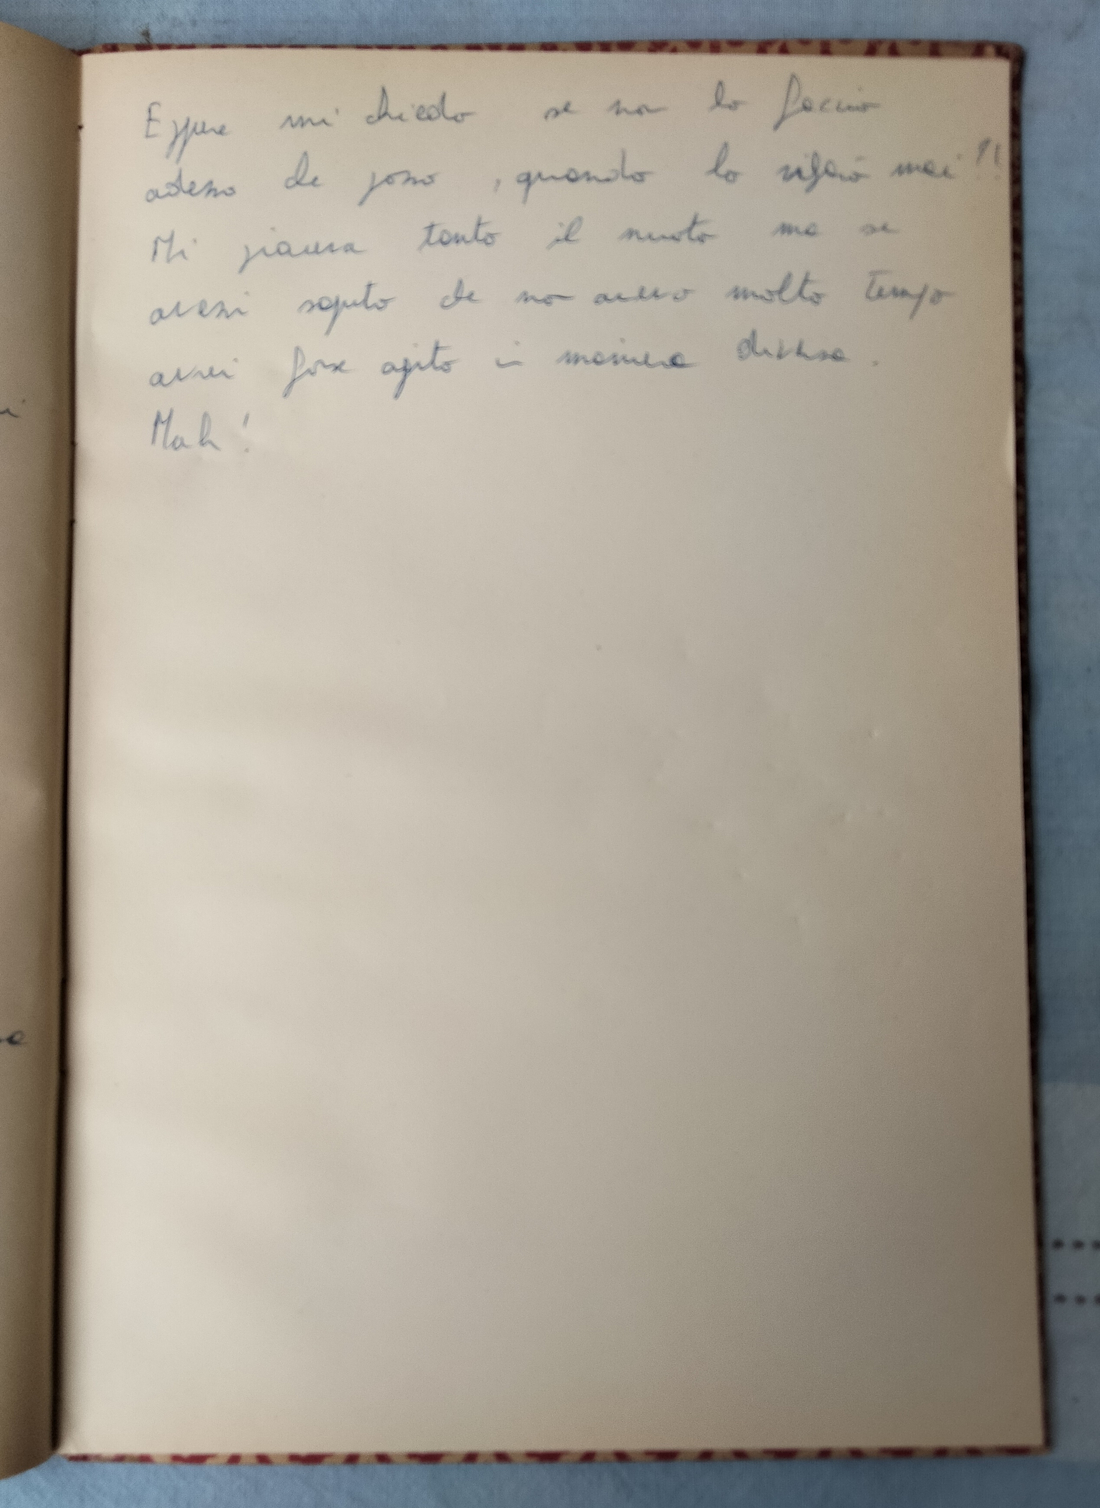 Eppure mi chiedo se non lo faccio
adesso che posso, quando lo rifarò mai?!
Mi piaceva tanto il nuoto ma se
avessi saputo che non avevo molto tempo
avrei forse agito in maniera diversa.
Mah!